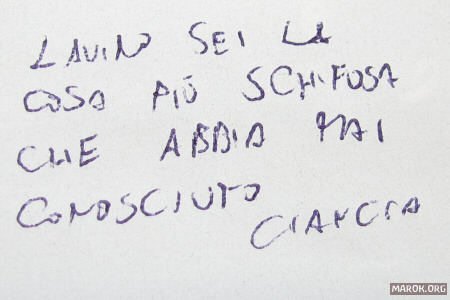 LAVINO SEI LA
COSA PIÙ SCHIFOSA
CHE ABBIA MAI
CONOSCIUTO
CIANCIA
MAROK.ORG